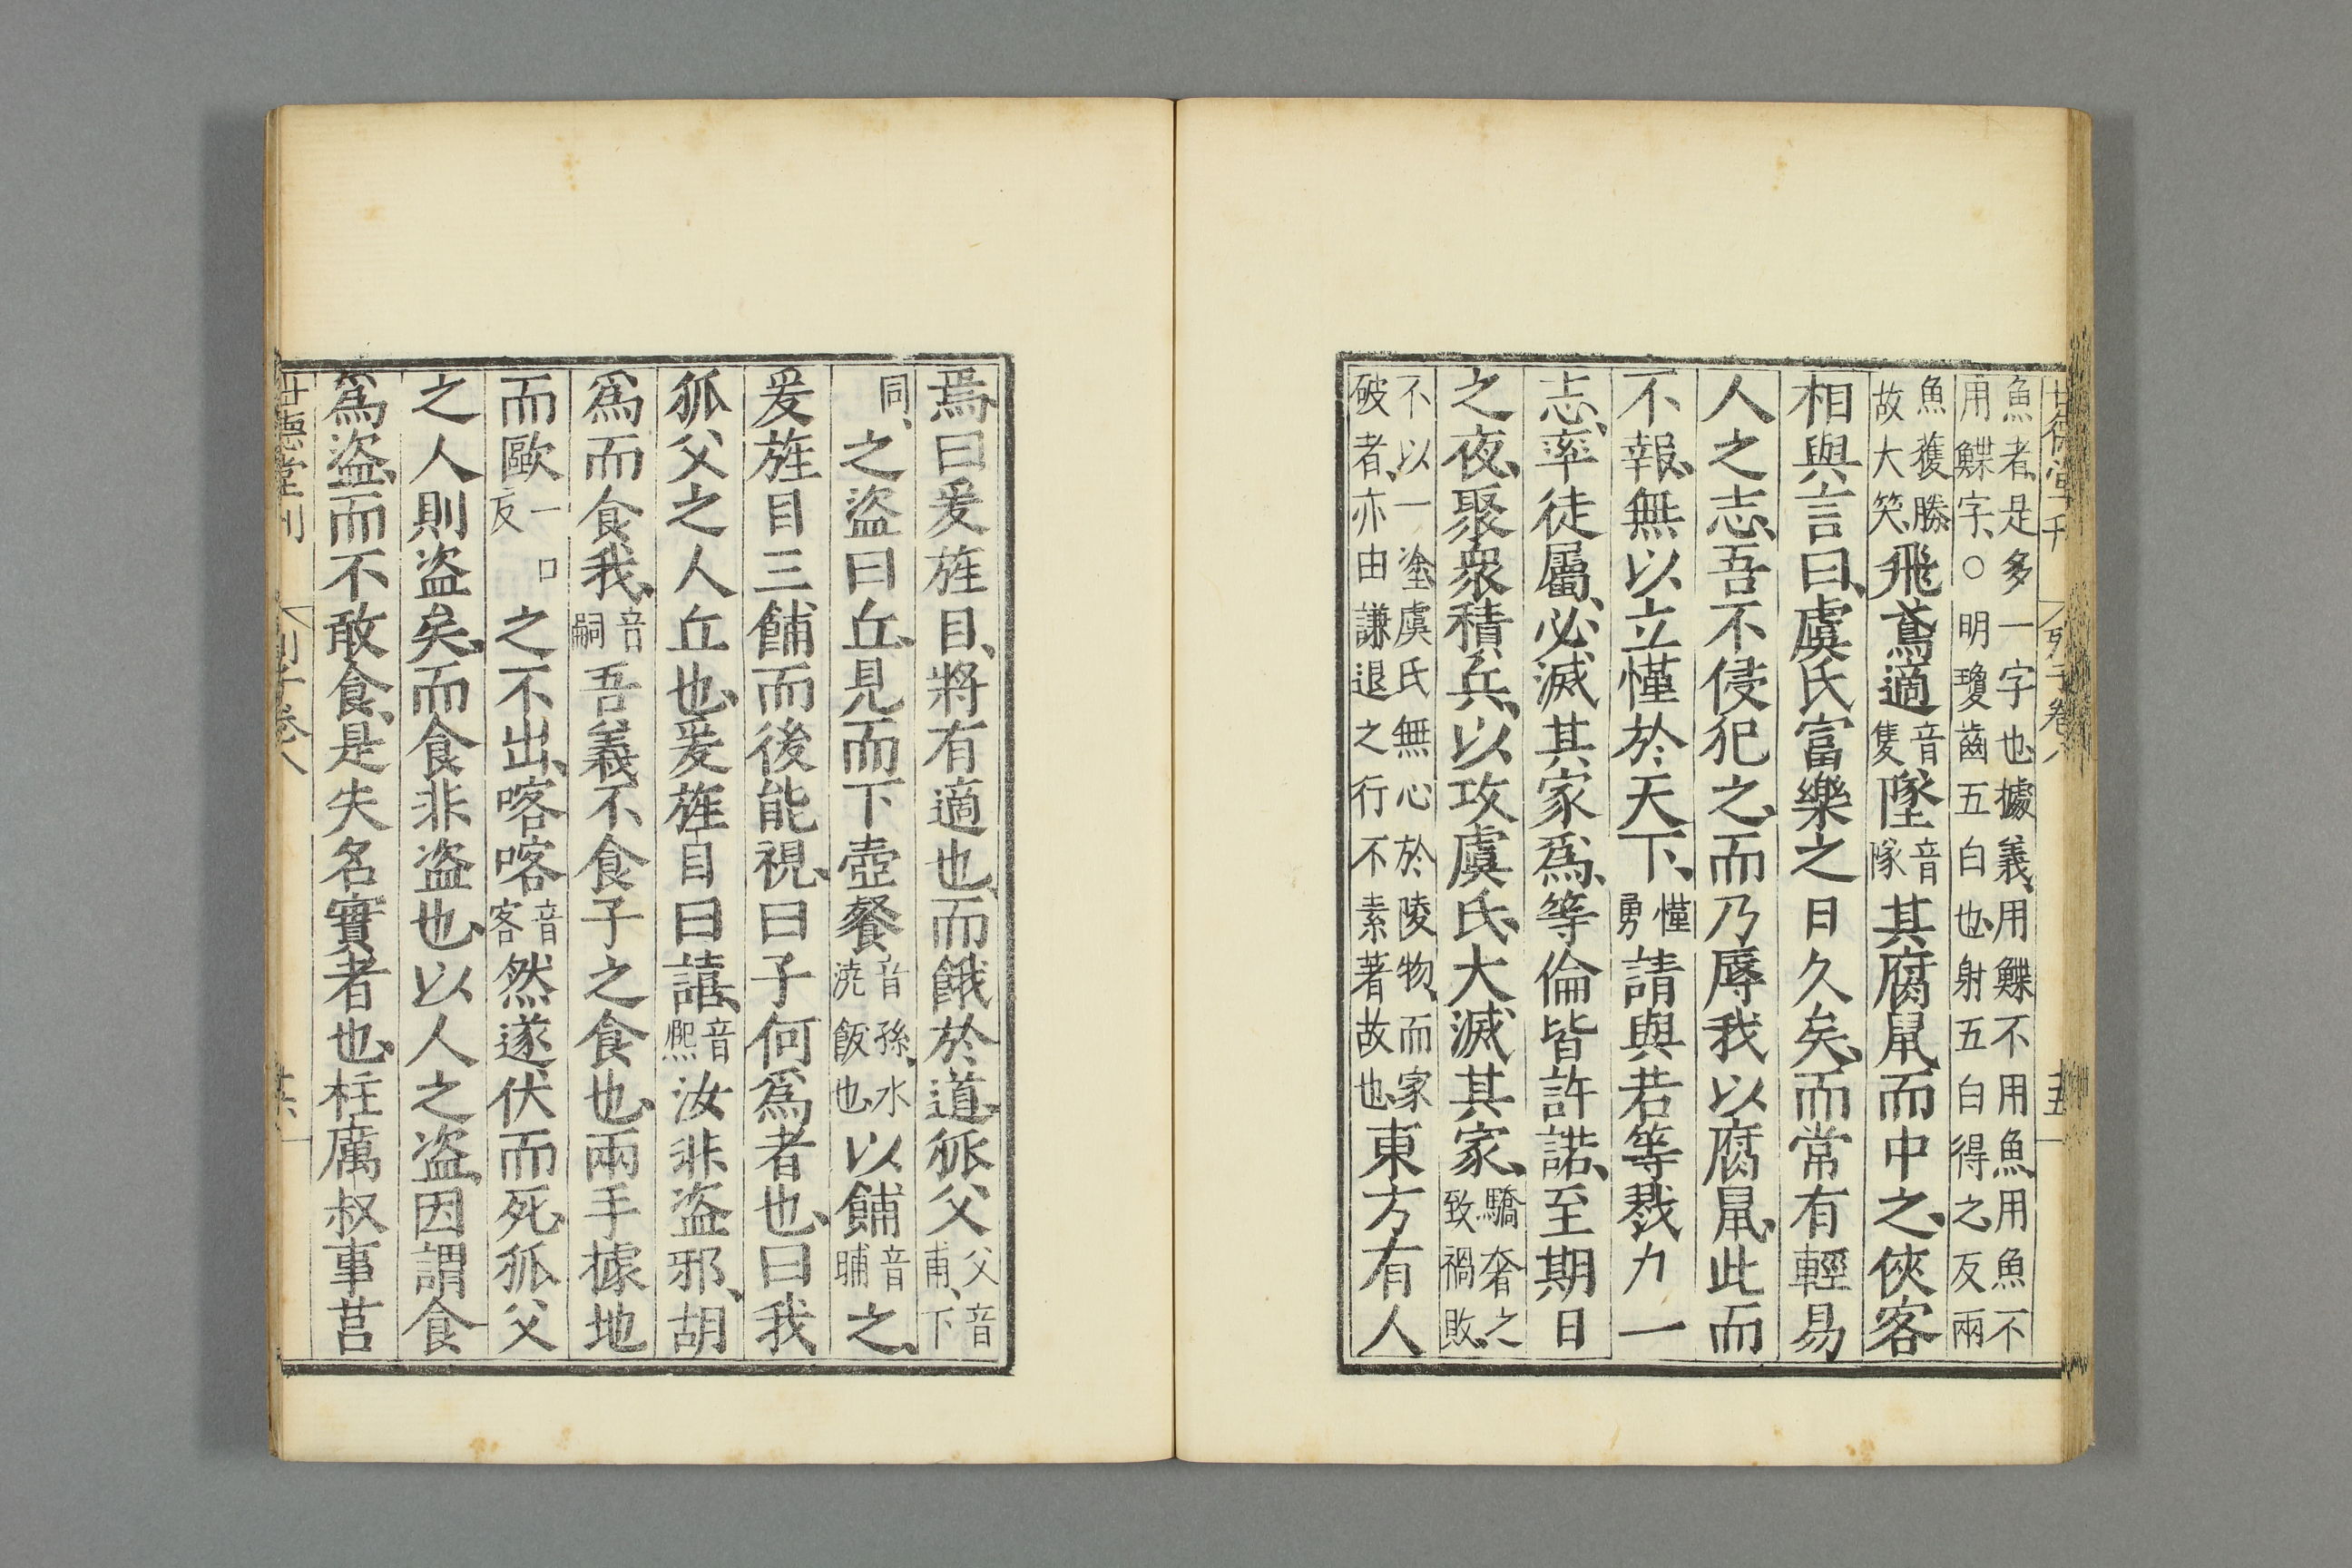 世德堂刊 列子卷八
魚者、是多一字也、據義、用鰈不用魚、用魚不
用鰈字、○明瓊齒五白也、射五白得之、反兩
魚獲勝、故大笑、飛鳶適音隻墜音隊其腐鼠而中之、俠客
相與言曰、虞氏富樂之日久矣、而常有輕易
人之志、吾不侵犯之、而乃辱我以腐鼠、此而
不報、無以立慬於天下、慬勇請與若等戮力一
志、率徒屬、必滅其家爲、等倫皆許諾、至期日
之夜、聚衆積兵、以攻虞氏、大滅其家、驕奢之致禍敗、
不以一塗虞氏無心於陵物、而家破者、亦由謙退之行不素著故也、東方有人
焉曰爰旌目、將有適也、而餓於道、狐父父音甫、下
同、之盜曰丘、見而下壺餐、音孫、水澆飯也、以餔音晡之、
爰旌目三餔而後能視、曰子何爲者也、曰我
狐父之人丘也、爰旌目曰譆、音熈汝非盜邪、胡
爲而食我、音嗣吾義不食子之食也、兩手據地
而歐一口反之不出、喀喀音客然遂伏而死、狐父
之人則盜矣、而食非盜也、以人之盜、因謂食
爲盜、而不敢食、是失名實者也、柱厲叔事莒
世德堂刊 列子卷八